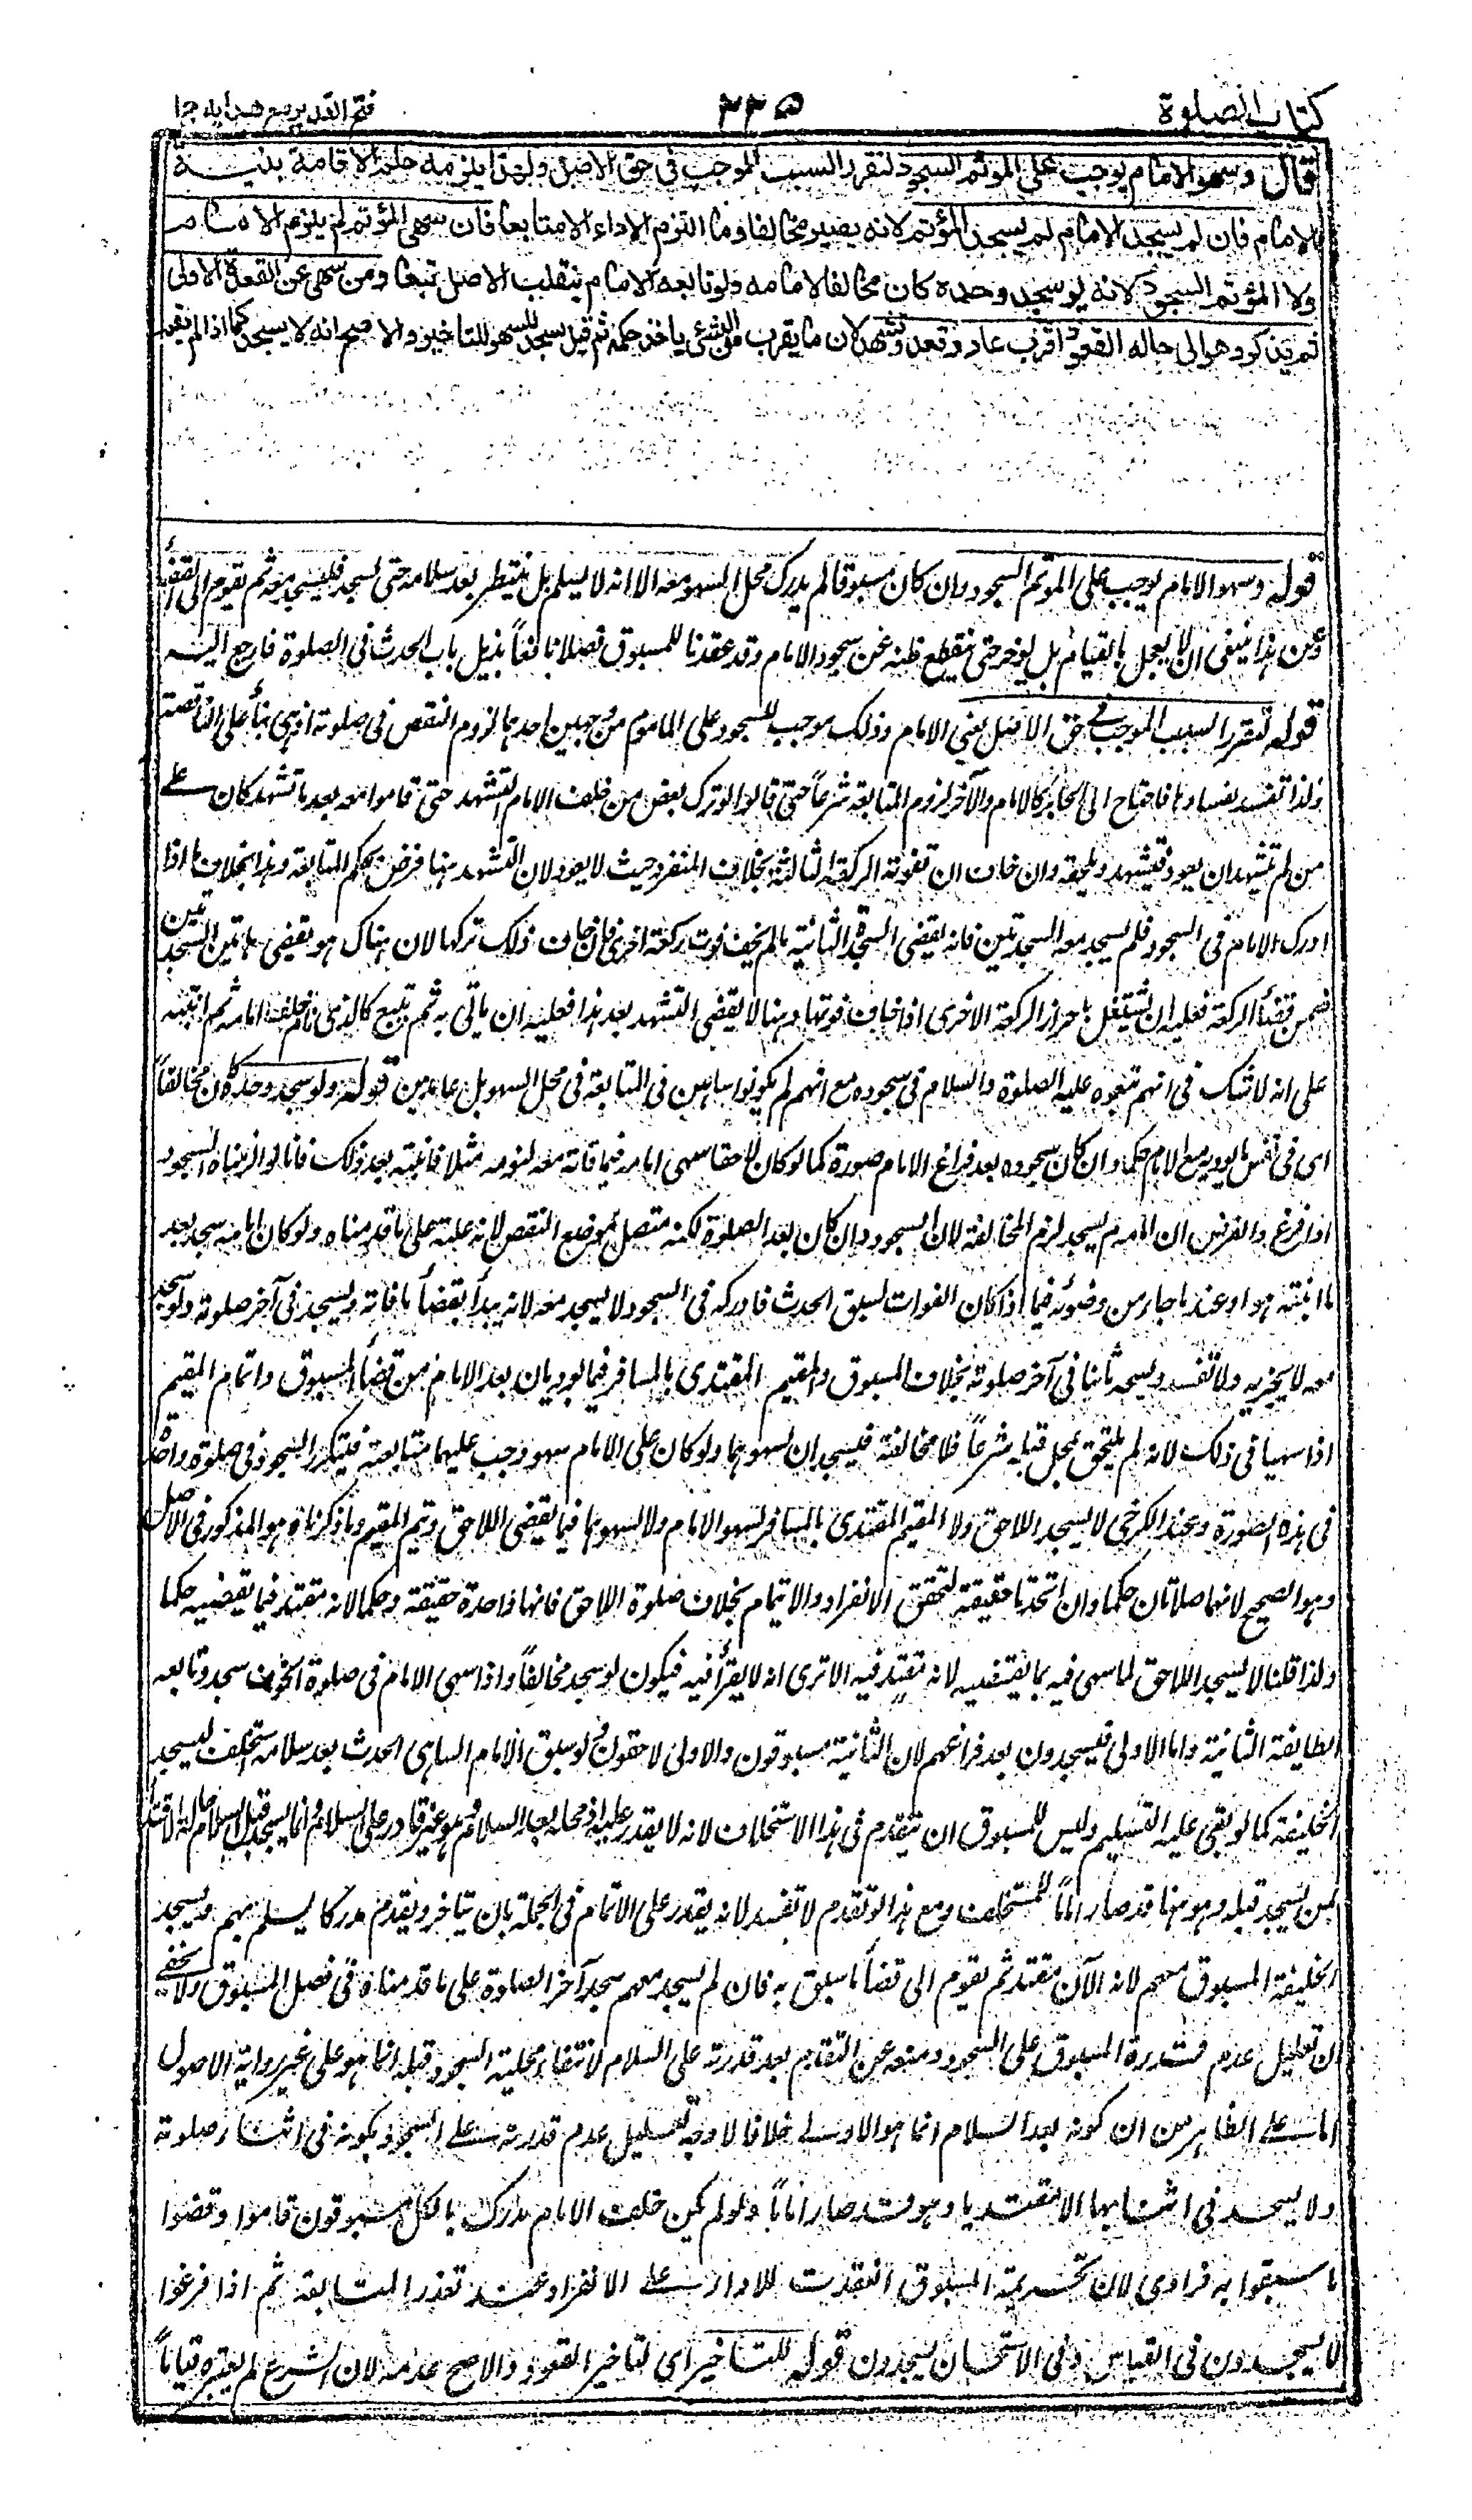 كتاب الصلوة
٢٢٥
فتح القدير مع هدايه ج ١
قال وسهو الامام يوجب على المؤتم السجود لتقرر السبب الموجب فى حق الاصل ولهذا يلزمه حكم الاقامة بنية
الامام فان لم يسجد الامام لم يسجد المؤتم لانه يصير مخالفا وما التزم الاداء الا متابعا فان سهى المؤتم لم يلزم الامام
ولا المؤتم السجود لانه لو سجد وحده كان مخالفا لامامه ولو تابعه الامام ينقلب الاصل تبعا ومن سهى عن القعدة الاولى
ثم تذكر وهو الى حالة القعود اقرب عاد وقعد وتشهد لان ما يقرب من الشئ ياخذ حكمه ثم قيل يسجد للسهو للتاخير والاصح انه لا يسجد كما اذا لم يقم
قوله وسهو الامام يوجب على المؤتم السجود وان كان مسبوقا لم يدرك محل السهو معه الا انه لا يسلم بل ينتظر بعد سلامه حتى يسجد فيسجد معه ثم يقوم الى القضاء
وعن هذا ينبغى ان لا يعجل بالقيام بل يؤخر حتى ينقطع ظنه عن سجود الامام وقد عقدنا للمسبوق فصلا نافعاً بذيل باب الحدث فى الصلوة فارجع اليه
قوله لتقرر السبب الموجب فى حق الاصل يعنى الامام وذلك موجب للسجود على الماموم من وجهين احدهما لزوم النقص فى صلوته اذ هى بناء على الناقصة
ولذا تفسد بفسادها فاحتاج الى الجابر كالامام والآخر لزوم المتابعة شرعاً حتى قالوا لو ترك بعض من خلف الامام التشهد حتى قاموا معه بعد ما تشهد كان على
من لم يتشهد ان يعود فيتشهد ويلحقه وان خاف ان تفوته الركعة الثالثة بخلاف المنفرد حيث لا يعود لان التشهد هنا فرض بحكم المتابعة وهذا بخلاف ما اذا
ادرك الامام فى السجود فلم يسجد معه السجدتين فانه يقضى السجدة الثانية ما لم يخف فوت ركعة اخرى فان خاف ذلك تركها لان هناك هو يقضى هاتين السجدتين
ضمن قضاء الركعة فعليه ان يشتغل باحراز الركعة الاخرى اذا خاف فوتها وهنا لا يقضى التشهد بعد هذا فعليه ان ياتى به ثم يتبع كالذى نام خلف امامه ثم انتبه
على انه لا شك فى انهم تبعوه عليه الصلوة والسلام فى سجوده مع انهم لم يكونوا ساهين فى المتابعة فى محل السهو بل عامدين قوله ولو سجد وحده كان مخالفاً
اى فى نفس ما يؤديه مع الامام حكما وان كان سجوده بعد فراغ الامام صورة كما لو كان لاحقا سهى امامه فيما فاته معه لنومه مثلا فانتبه بعد ذلك فانا لو الزمناه السجود
اذا فرغ والفرض ان امامه لم يسجد لزم المخالفة لان السجود وان كان بعد الصلوة لكنه متصل بموضع النقص لانه علته على ما قدمناه ولو كان امامه سجد بعد
ما انتبه هو او عند ما جاء من وضوئه فيما اذا كان الفوات لسبق الحدث فادركه فى السجود لا يسجد معه لانه يبدأ بقضاء ما فاته ويسجد فى آخر صلوته ولو سجد
معه لا يجزيه ولا تفسد ويسجد ثانيا فى آخر صلوته بخلاف المسبوق والمقيم المقتدى بالمسافر فيما يؤديان بعد الامام من قضاء المسبوق واتمام المقيم
اذا سهيا فى ذلك لانه لم يلتحق بمحل قبله شرعاً فلا مخالفة فيسجدان لسهوهما ولو كان على الامام سهو وجب عليهما متابعته فيتكرر السجود فى صلوة واحدة
فى هذه الصورة وعند الكرخى لا يسجد اللاحق ولا المقيم المقتدى بالمسافر لسهو الامام ولا لسهوهما فيما يقضى اللاحق ويتم المقيم وما ذكرناه هو المذكور فى الاصل
وهو الصحيح لانهما صلاتان حكما وان اتحدتا حقيقة لتحقق الانفراد والايتمام بخلاف صلوة اللاحق فانها واحدة حقيقة وحكما لانه مقتد فيما يقضيه حكما
ولذا قلنا لا يسجد اللاحق لما سهى فيه مما يقضيه لانه مقتد فيه الا ترى انه لا يقرأ فيه فيكون لو سجد مخالفاً واذا سهى الامام فى صلوة الخوف سجد وتابعه
الطايفة الثانية واما الاولى فيسجدون بعد فراغهم لان الثانية مسبوقون والاولى لاحقون ولو سبق الامام الساهى الحدث بعد سلامه استخلف ليسجد
الخليفة كما لو بقى عليه التسليم وليس للمسبوق ان يتقدم فى هذا الاستخلاف لانه لا يقدر عليه اذ محله بعد السلام وهو غير قادر على السلام وانما يسجد قبل السلام حالة الاقتداء
بمن يسجد قبله وهو هنا قد صار اماماً للمستخلف ومع هذا لو تقدم لا تفسد لانه يقدر على الاتمام فى الجملة بان يتاخر ويقدم مدركا يسلم بهم ويسجد
الخليفة المسبوق معهم لانه الآن مقتد ثم يقوم الى قضاء ما سبق به فان لم يسجد معهم سجد آخر الصلوة على ما قدمناه فى فصل المسبوق ولا يخفى
ان تعليل عدم قدرة المسبوق على السجود ومنعه عن التقادم بعد قدرته على السلام لانتفاء محلية السجود قبله انما هو على غير رواية الاصول
اما على الظاهر من ان كونه بعد السلام انما هو الاولى خلافا لا وجه لتعليل عدم قدرته على السجود بكونه فى اثناء صلوته
ولا يسجد فى اثنايها الا مقتديا وهو قد صار اماماً ولو لم يكن خلف الامام مدرك بل الكل مسبوقون قاموا وقضوا
ما سبقوا به فرادى لان تحريمة المسبوق انعقدت للاداء على الانفراد عند تعذر المتابعة ثم اذا فرغوا
لا يسجدون فى القياس وفى الاستحسان يسجدون قوله للتاخير اى لتاخير القعود والاصح عدمه لان الشرع لم يعتبره قياماً